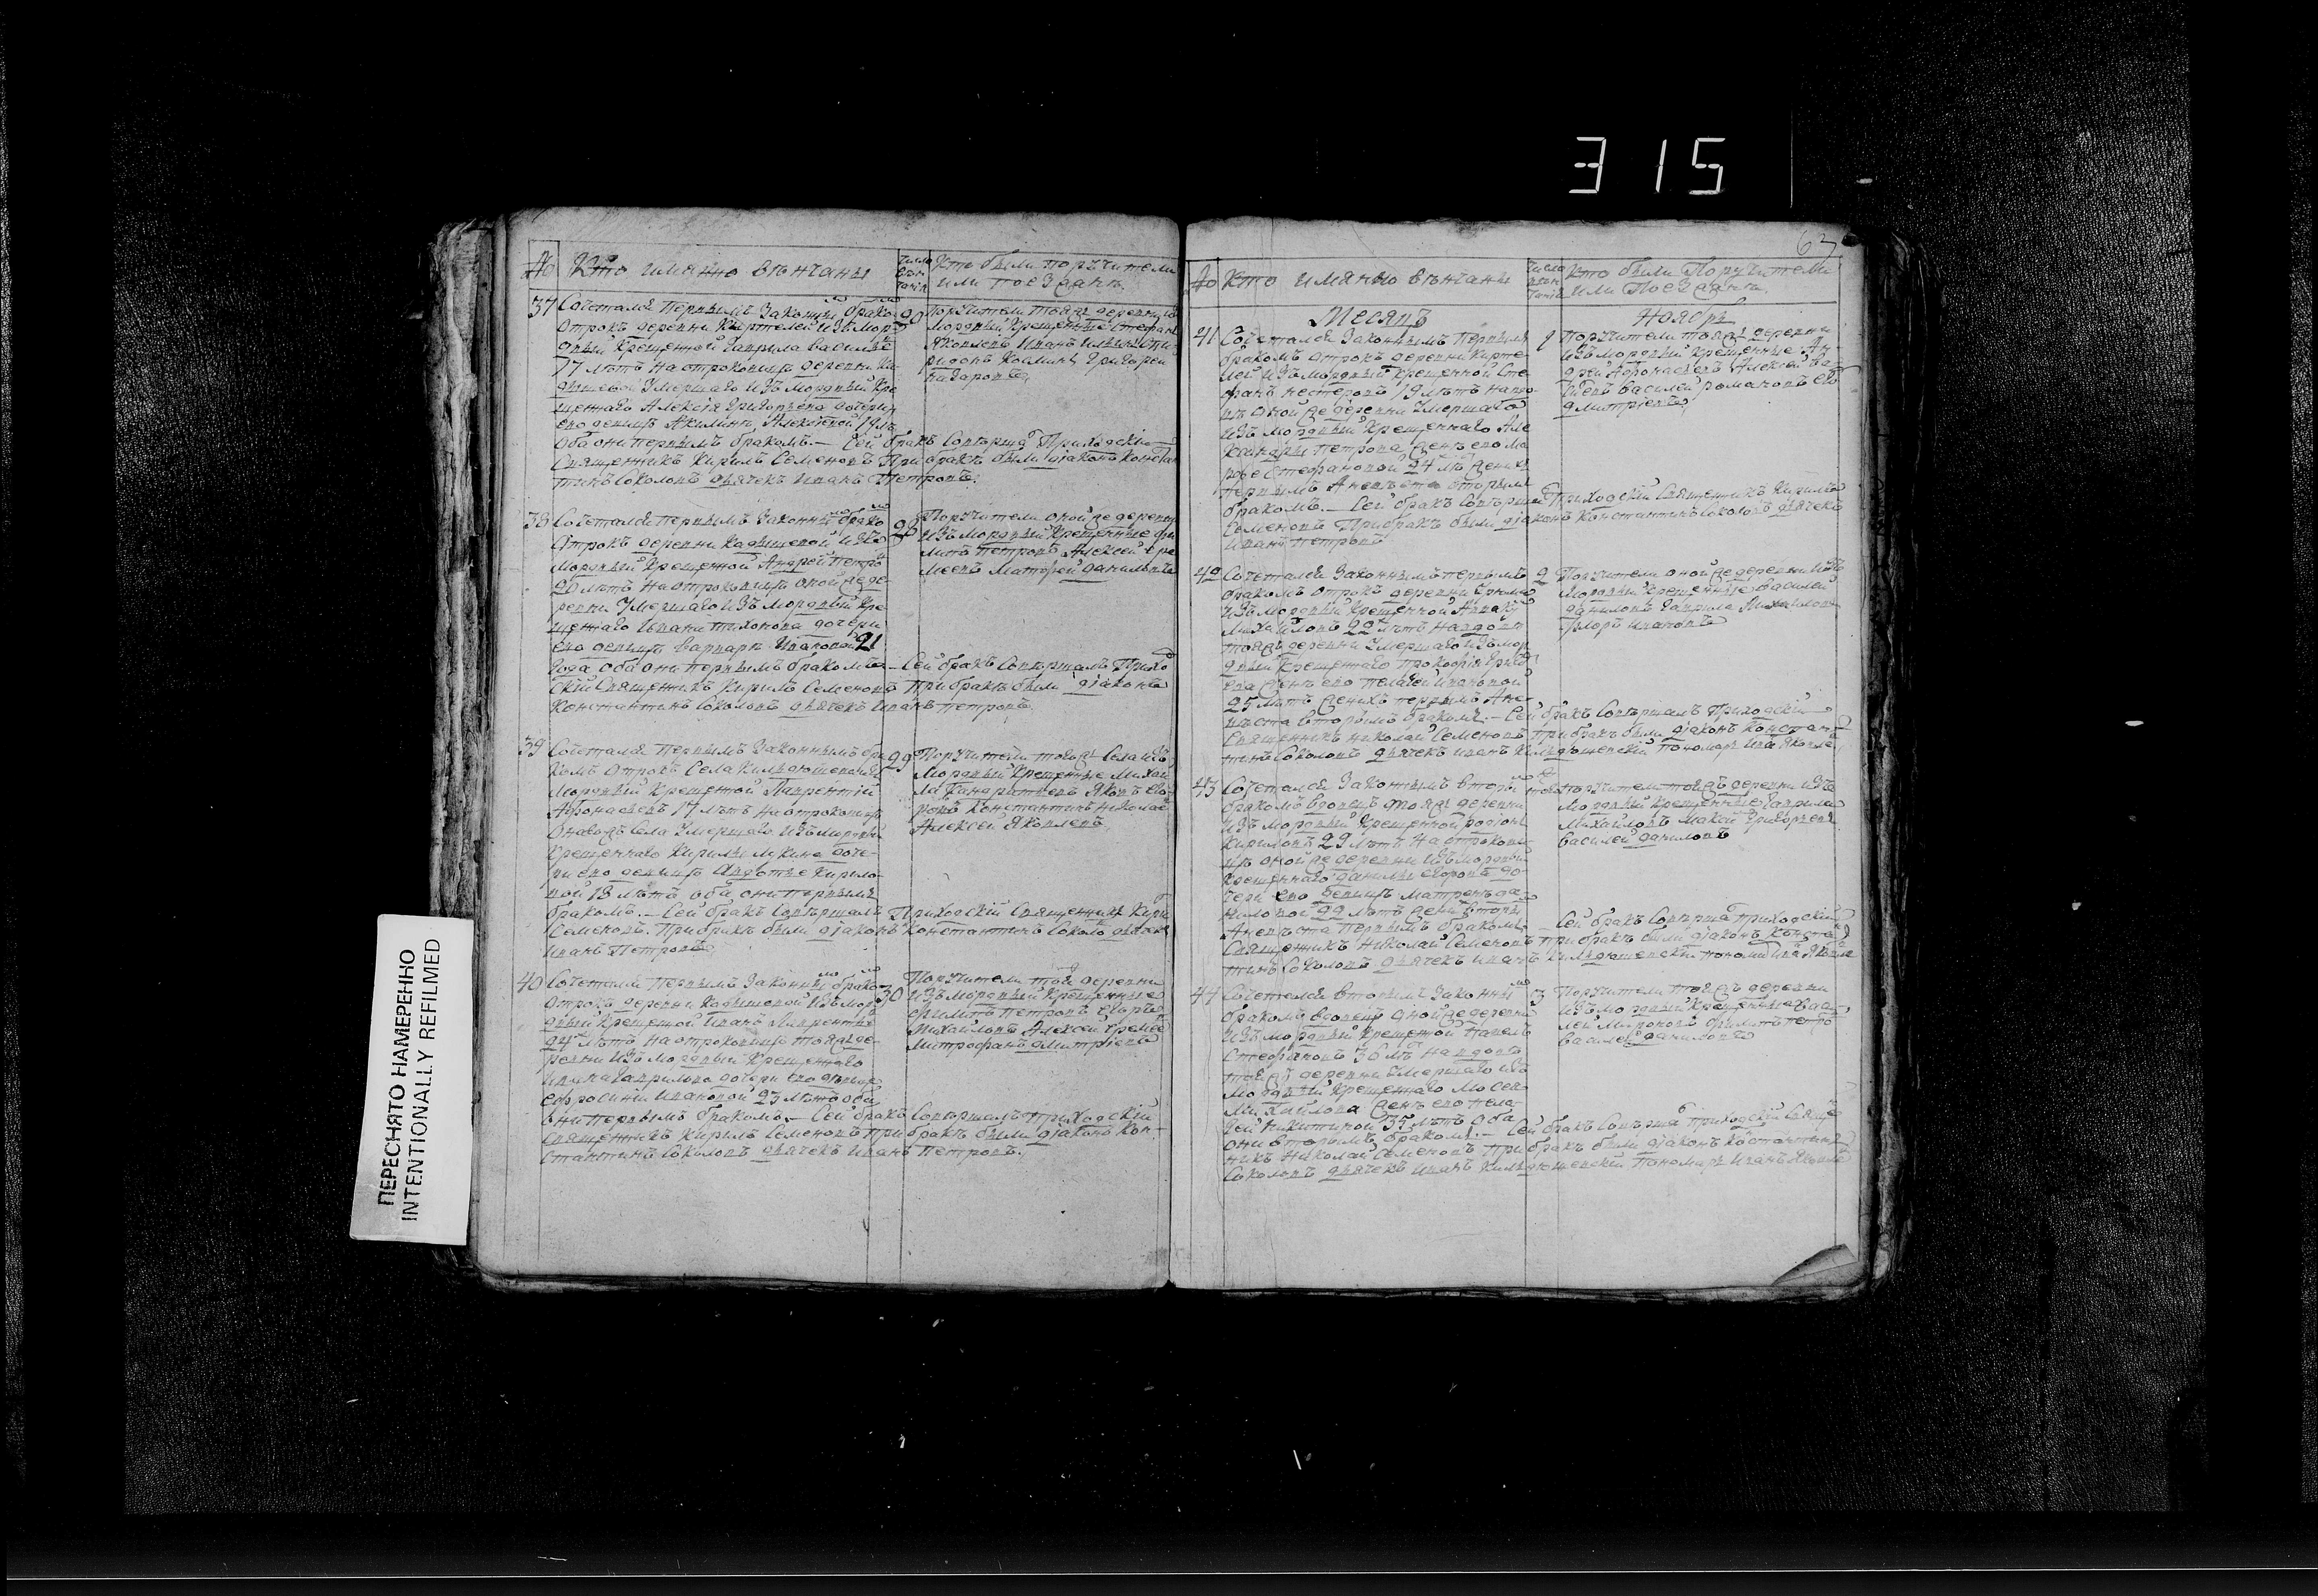 315
63
№ Кто имянно вѣнчаны
Число вѣнчанія
Кто были поручители
или поезжанѣ.
37 Сочетался Первымъ Законны^мъ брако^мъ
отрокъ деревни Киртелей изъ мор-
двы крещенной Гаврила Василье
17 лѣтъ на отроковицѣ деревни Ка
дышевой Умершаго изъ мордвы Кре
щеннаго Алексія Григорьева дочери
ево девицѣ Акилинѣ Алексѣевой 19 лѣ
Оба они первымъ бракомъ. — Сей бракъ Соверша Приходскій
Священникъ Кирилъ Семеновъ При бракѣ были діаконъ Констан
тинъ Соколовъ дьячекъ Иванъ Петровъ.
Поручители тояжъ деревни
мордвы крещенные Стефанъ
Яковлевъ Иванъ Ильинъ Спи
ридонъ Козминъ Григорей
Назаровъ
38 Сочетался первымъ Законны^мъ брако^мъ
Отрокъ деревни Кадышевой изъ
мордвы крещенной Андрей Петръ
20 лѣтъ На отроковицѣ онойже де-
ревни Умершаго изъ мордвы Кре
щеннаго Ивана Тихонова дочери
ево девицѣ Варварѣ Ивановой 21
Года оба они первымъ бракомъ. — Сей бракъ Совершалъ Прихо
скій Священникъ Кирилъ Семеновъ При бракѣ были діаконъ
Константинъ Соколовъ дьячекъ Иванъ Петровъ.
28
Поручители онойже деревни
изъ мордвы крещенные Фи
липъ Петровъ Алексей Ере
меевъ Матфей Даниловъ
39 Сочетался Первымъ Законнымъ бра
комъ Отрокъ Села Кильдюшева изъ
Мордвы крещенной Лаврентій
Афонасьевъ 17 лѣтъ На отроковицѣ
Онагожъ Села Умершаго изъ мордвы
крещеннаго Кирилы Лукина доче-
ри ево девицѣ Авдотье Кирило-
вой 18 лѣтъ оба они первымъ
бракомъ. — Сей бракъ Совершалъ Приходскій Священникъ Кири
Семеновъ. При бракѣ были діаконъ Константинъ Соколо дьячек
Иванъ Петровъ
29
Поручители тогожъ Села изъ
Мордвы Крещенные Михай
ла Кандратьевъ Яковъ Его
ровъ Константинъ Николае
Алексей Яковлевъ.
40 Сочетался Первымъ Законны^мъ брако^мъ
Отрокъ деревни Кадышевой изъ мор
двы крещеной Иванъ Лаврентье
24 лѣтъ на отроковицѣ тояжъ де-
ревни изъ мордвы Крещеннаго
Ивана Гаврилова дочери ево девице
Ефросиніи Ивановой 23 лѣтъ оба
они первымъ бракомъ. — Сей бракъ Совершалъ Приходскій
Священникъ Кирилъ Семеновъ При бракѣ были діаконъ Кон-
стантинъ Соколовъ дьячекъ Иванъ Петровъ.
30
Поручители той деревни
изъ мордвы Крещенные
Филипъ Петровъ Егоръ
Михайловъ Алексеи Еремее
Митрофанъ Дмитріевъ
№ Кто имянно вѣнчаны
Число вѣнчанія
Кто были Поручители
или Поезжанѣ.
Месяцъ Ноябрь
41 Сочетался Законнымъ Первымъ
бракомъ отрокъ деревни Кирте-
лей изъ мордвы крещенной Сте
фанъ Нестеровъ 19 лѣтъ на вдо
вѣ онойже деревни Умершаго
изъ мордвы крещеннаго Але
ксандры Петрова Женѣ ево Ма
рье Стефановой 24 лѣ Женихъ
первымъ А невѣста вторымъ
бракомъ. — Сей бракъ Соверша Приходскій Священникъ Кирилъ
Семеновъ При бракѣ были діаконъ Константинъ Соколовъ дьячекъ
Иванъ Петровъ
1
Поручители тояжъ деревни
изъ мордвы крещенные Ан-
дрей Афонасьевъ Алексей Ва-
Василей Романовъ
Дмитріевъ
42 Сочетался Законнымъ первымъ
бракомъ отрокъ деревни
изъ мордвы крещенной
Михайловъ 22 лѣтъ на вдовѣ
тояжъ деревни Умершаго изъ мор
двы крещеннаго Прокофія
Женѣ ево Пелагеи Ивановой
25 лѣтъ женихъ первымъ А не-
вѣста вторымъ бракомъ. — Сей бракъ Совершалъ Приходскій
Священникъ Николай Семеновъ при бракѣ были діаконъ Констан
тинъ Соколовъ дьячекъ Иванъ Кильдюшевскій Пономарь Ива Яковле
2
Поручители онойже деревни изъ
Мордвы крещенные Василей
Даниловъ Гаврила Михаилов
Флоръ Ивановъ
43 Сочетался Законнымъ вторы^мъ
бракомъ вдовецъ тояжъ деревни
изъ мордвы крещенной Родіонъ
Кириловъ 29 лѣтъ На отрокови
цѣ онойже деревни изъ мордвы
крещеннаго Данилы Егорова до-
чери ево девицѣ Матренѣ Да-
ниловой 22 лѣтъ жени вторы
А невѣста Первымъ бракомъ — Сей бракъ Соверша Приходскій
Священникъ Николай Семеновъ При бракѣ были діаконъ Конста
тинъ Соколовъ дьячекъ Иванъ Кильдюшевскій пономарь Ива Яковле
Поручители тояжъ деревни изъ
Мордвы крещенные Гаврила
Михайловъ Макай Григорьевъ
Василей Даниловъ
44 Сочетался вторымъ Законны^мъ
бракомъ вдовецъ онойже деревни
изъ мордвы крещеной Павелъ
Стефановъ 30 лѣ На вдовѣ
той жъ деревни Умершаго изъ
Мордвы крещеннаго Мосея
Михайлова Женѣ ево Пела-
геи Никитиной 35 лѣтъ Оба
они вторымъ бракомъ. — Сей бракъ Соверша Приходскій Свяще
никъ Николай Семеновъ При бракѣ были діаконъ Костантинъ
Соколовъ дьячекъ Иванъ Кильдюшевскій Пономарь Иванъ Яковле
3
Поручители тояжъ деревни
изъ мордвы крещенные Васи
лей Мироновъ Филипъ Петро
Василей Даниловъ
ПЕРЕСНЯТО НАМЕРЕННО
INTENTIONALLY REFILMED